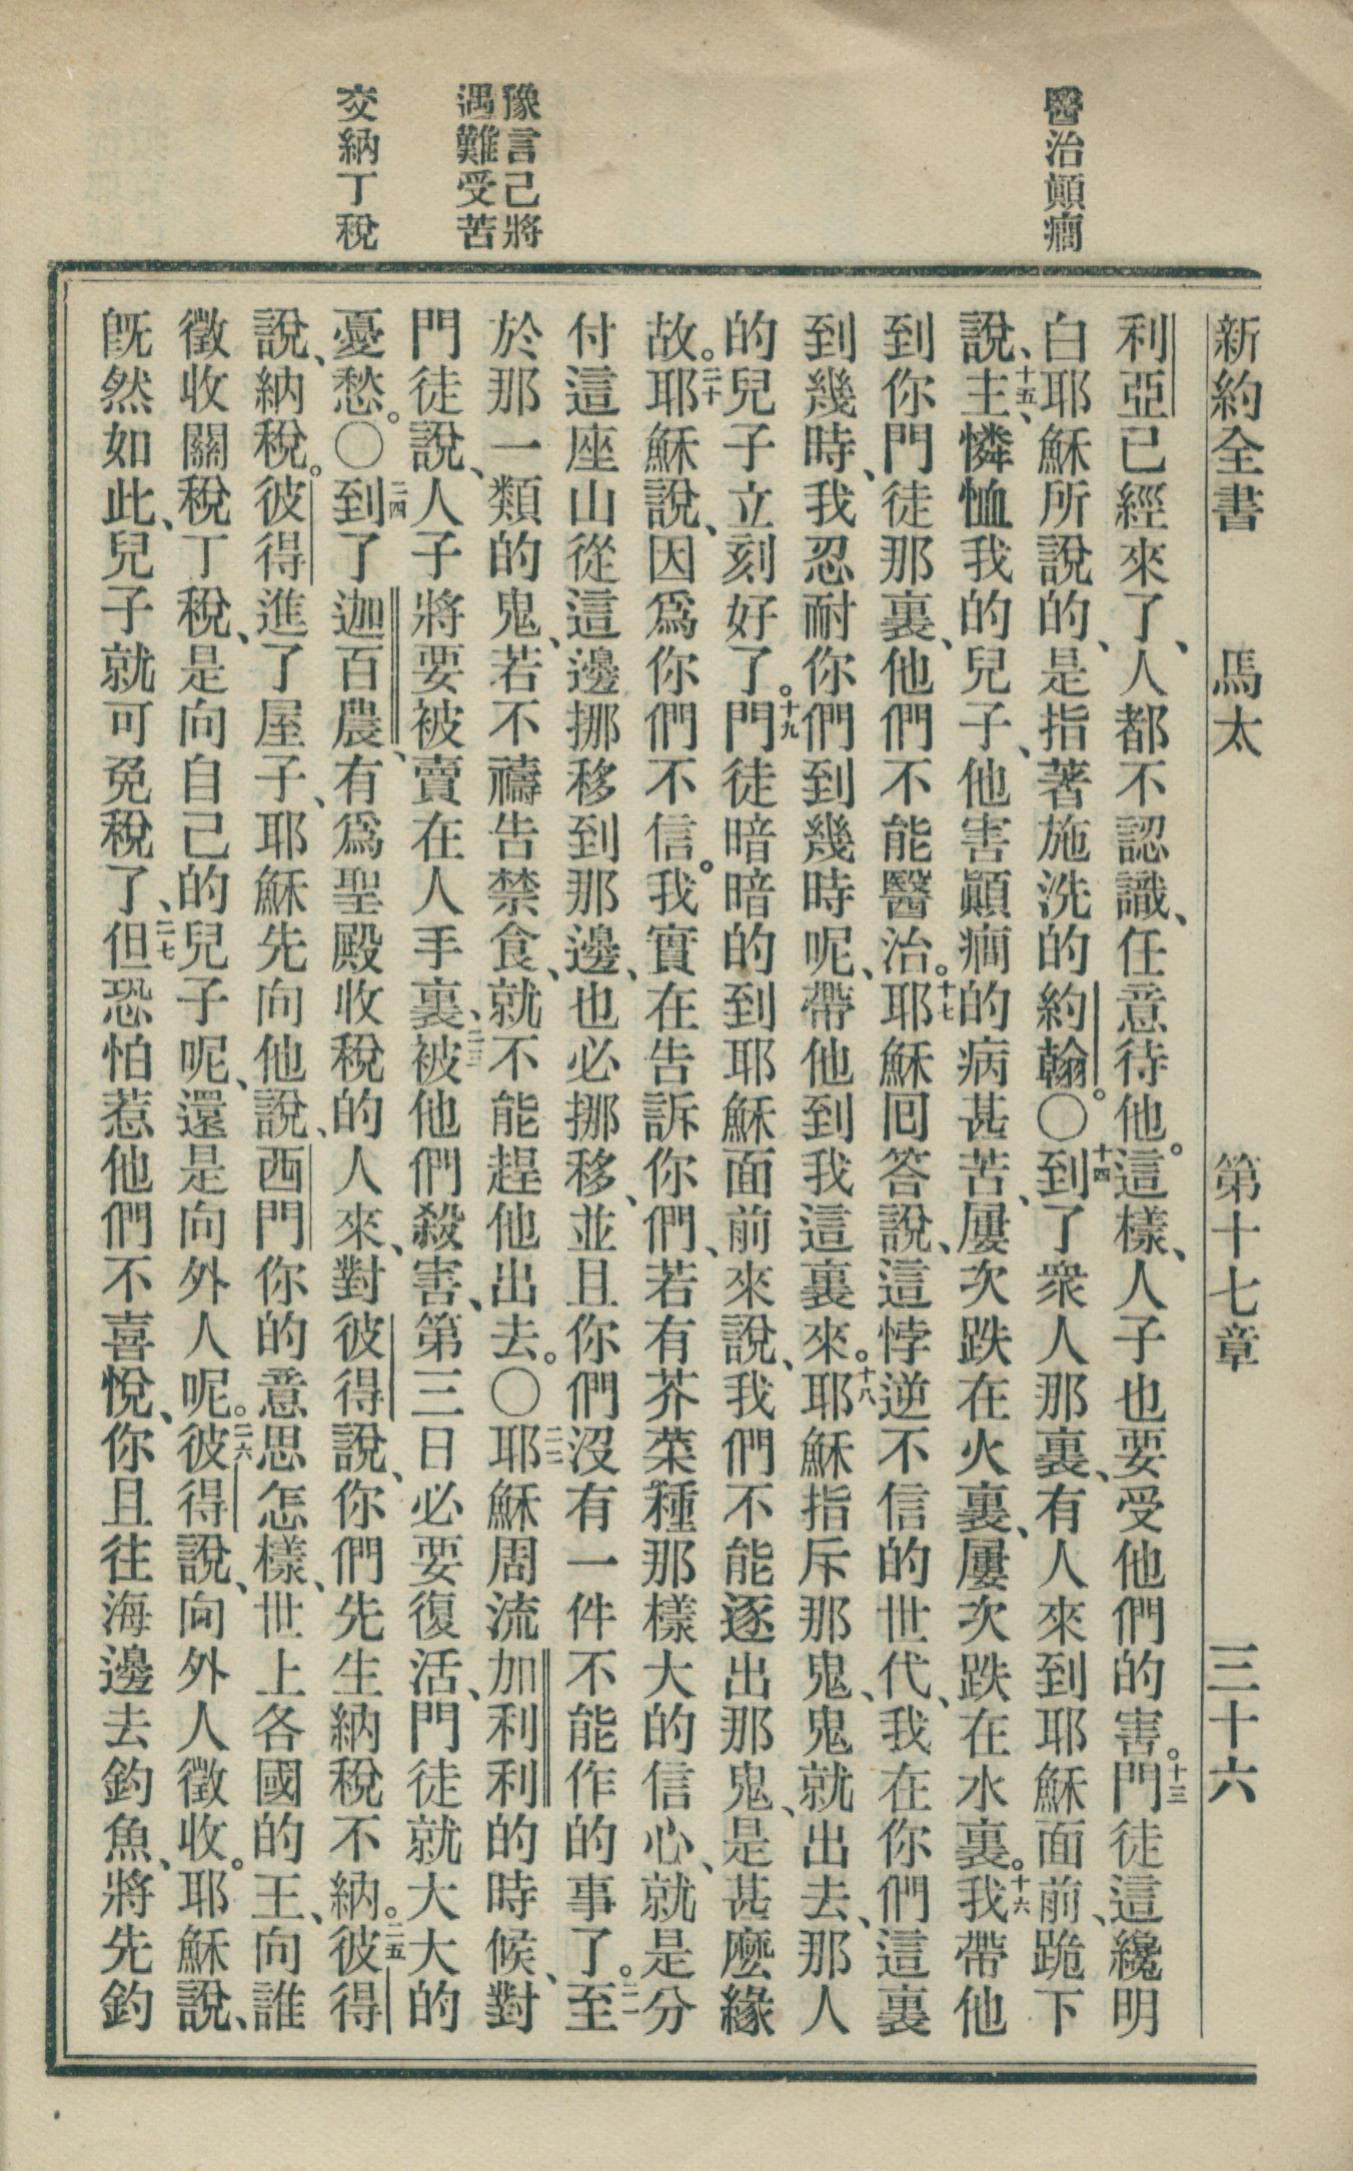 新約全書　馬太　第十七章　三十六
醫治顚癎
豫言己將
遇難受苦
交納丁稅
利亞已經來了、人都不認識、任意待他。這樣、人子也要受他們的害。十三門徒這纔明
白耶穌所說的、是指著施洗的約翰。〇十四到了衆人那裏、有人來到耶穌面前、跪下
說、十五主、憐恤我的兒子、他害顚癎的病甚苦、屢次跌在火裏、屢次跌在水裏。十六我帶他
到你門徒那裏、他們不能醫治。十七耶穌囘答說、這悖逆不信的世代、我在你們這裏
到幾時、我忍耐你們到幾時呢、帶他到我這裏來。十八耶穌指斥那鬼、鬼就出去、那人
的兒子立刻好了。十九門徒暗暗的到耶穌面前來說、我們不能逐出那鬼、是甚麼緣
故。二十耶穌說、因爲你們不信。我實在告訴你們、若有芥菜種那樣大的信心、就是分
付這座山從這邊挪移到那邊、也必挪移、並且你們沒有一件不能作的事了。二一至
於那一類的鬼、若不禱告禁食、就不能趕他出去。〇二二耶穌周流加利利的時候、對
門徒說、人子將要被賣在人手裏、二三被他們殺害、第三日必要復活、門徒就大大的
憂愁。〇二四到了迦百農、有爲聖殿收稅的人來、對彼得說、你們先生納稅不納。二五彼得
說、納稅。彼得進了屋子、耶穌先向他說、西門你的意思怎樣、世上各國的王、向誰
徵收關稅丁稅、是向自己的兒子呢、還是向外人呢。二六彼得說、向外人徵收。耶穌說、
旣然如此、兒子就可免稅了、二七但恐怕惹他們不喜悅、你且往海邊去釣魚、將先釣